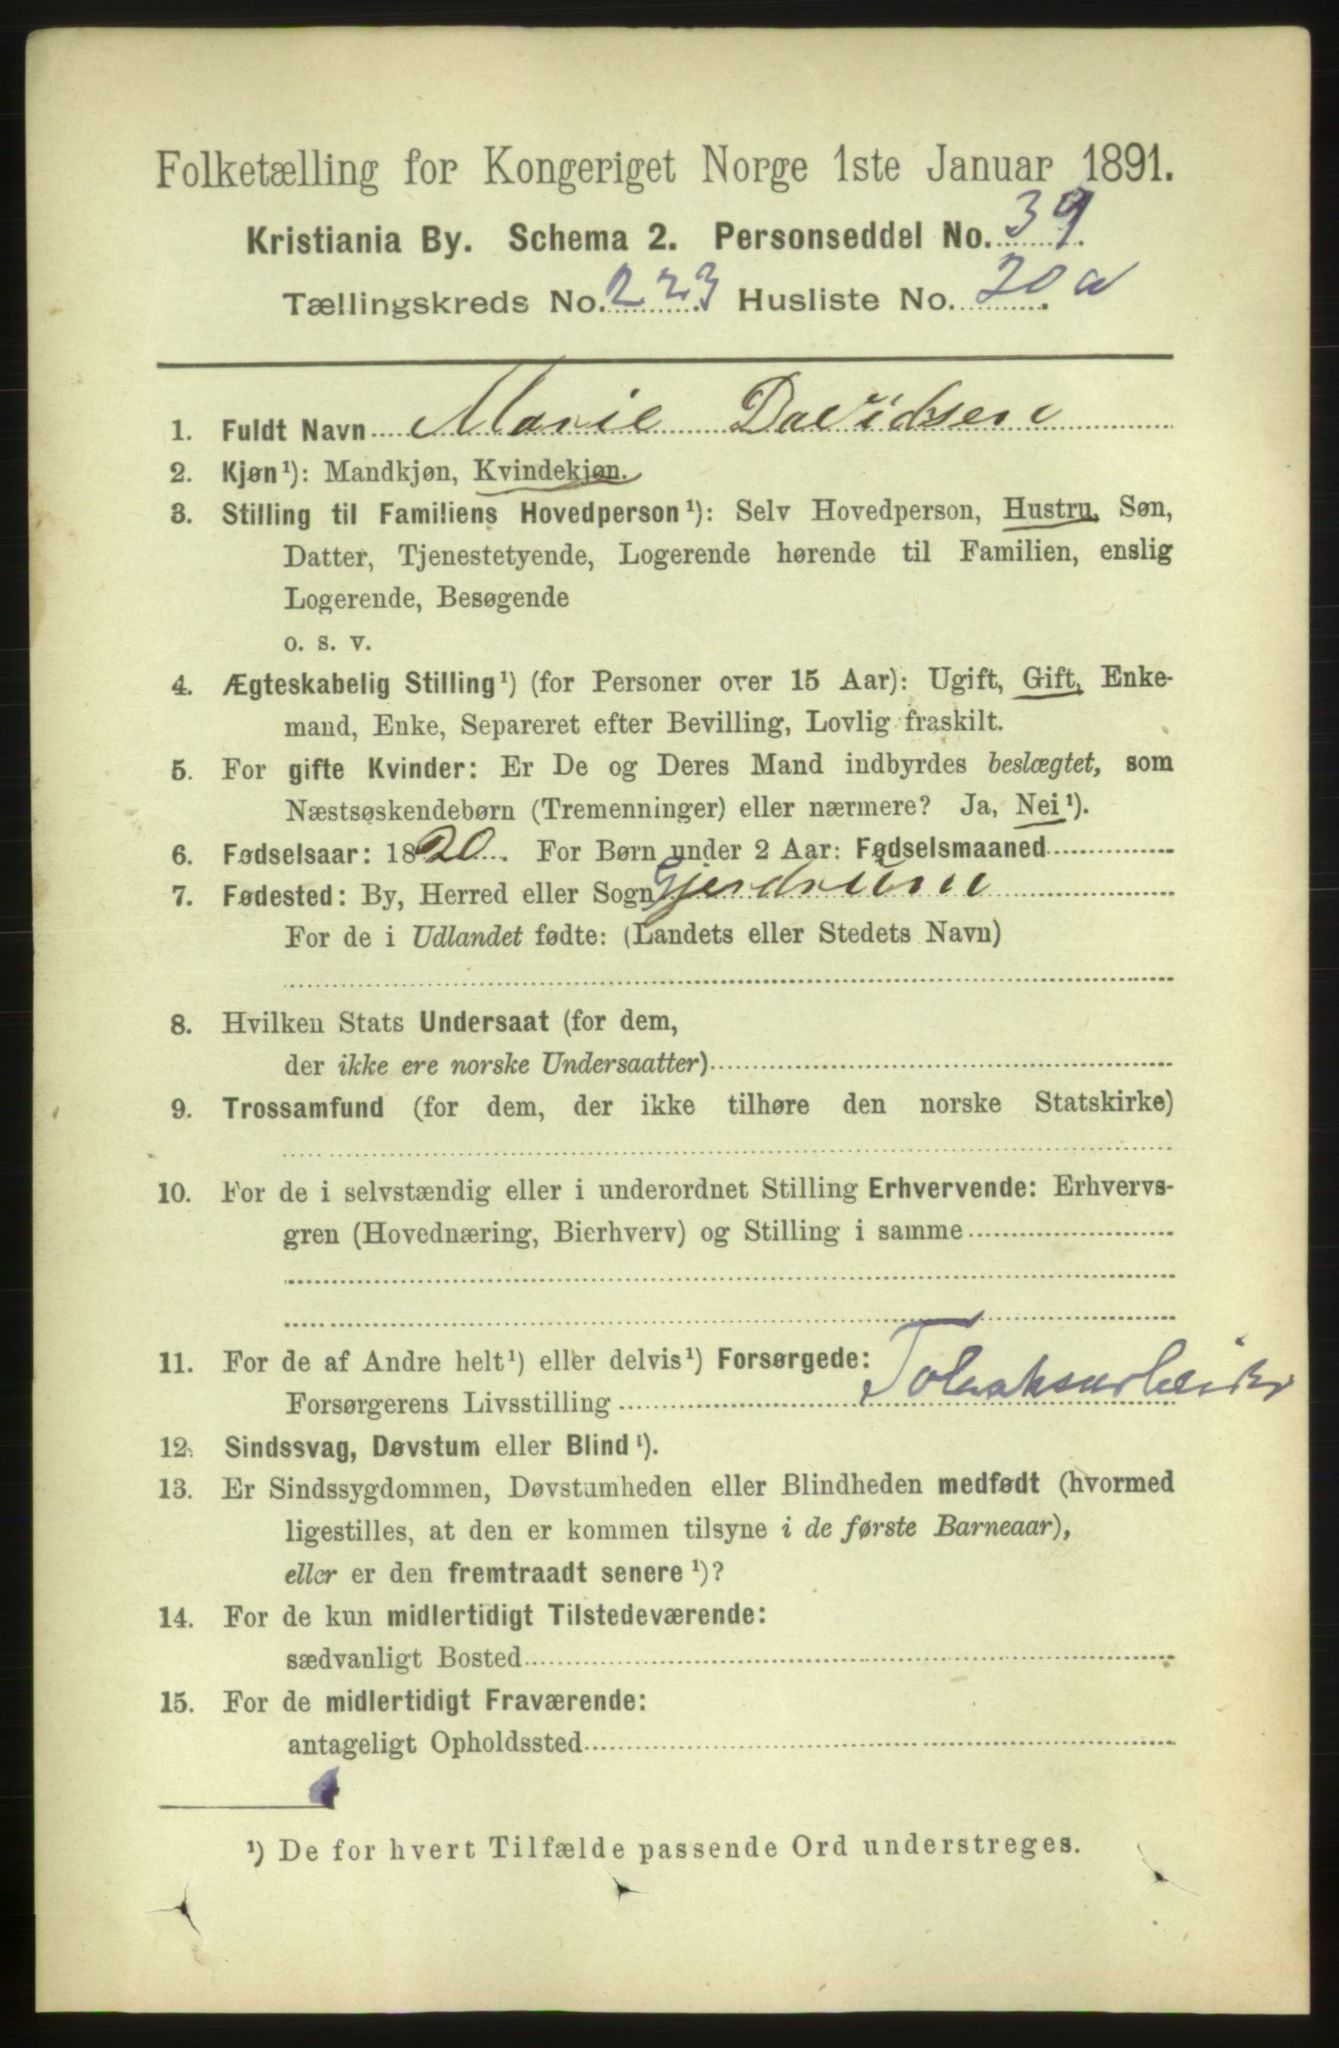 Folketælling for Kongeriget Norge 1ste Januar 1891.
Kristiania By. Schema 2. Personseddel No. 39.
Tællingskreds No. 223 Husliste No. 20a
1. Fuldt Navn Marie Davidsen
2. Kjøn¹): Mandkjøn, Kvindekjøn.
3. Stilling til Familiens Hovedperson¹): Selv Hovedperson, Hustru, Søn,
Datter, Tjenestetyende, Logerende hørende til Familien, enslig
Logerende, Besøgende
o. s. v.
4. Ægteskabelig Stilling¹) (for Personer over 15 Aar): Ugift, Gift, Enke-
mand, Enke, Separeret efter Bevilling, Lovlig fraskilt.
5. For gifte Kvinder: Er De og Deres Mand indbyrdes beslægtet, som
Næstsøskendebørn (Tremenninger) eller nærmere? Ja, Nei¹).
6. Fødselsaar: 1820. For Børn under 2 Aar: Fødselsmaaned
7. Fødested: By, Herred eller Sogn Gjerdrum
For de i Udlandet fødte: (Landets eller Stedets Navn)
8. Hvilken Stats Undersaat (for dem,
der ikke ere norske Undersaatter)
9. Trossamfund (for dem, der ikke tilhøre den norske Statskirke)
10. For de i selvstændig eller i underordnet Stilling Erhvervende: Erhvervs-
gren (Hovednæring, Bierhverv) og Stilling i samme
11. For de af Andre helt¹) eller delvis¹) Forsørgede:
Forsørgerens Livsstilling Tobaksarbeider
12. Sindssvag, Døvstum eller Blind¹).
13. Er Sindssygdommen, Døvstumheden eller Blindheden medfødt (hvormed
ligestilles, at den er kommen tilsyne i de første Barneaar),
eller er den fremtraadt senere¹)?
14. For de kun midlertidigt Tilstedeværende:
sædvanligt Bosted
15. For de midlertidigt Fraværende:
antageligt Opholdssted
¹) De for hvert Tilfælde passende Ord understreges.